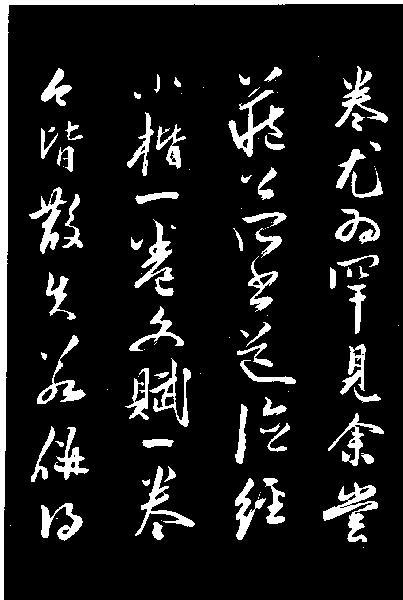 卷尤為罕見余嘗
藏公所書道德經
小楷一卷文賦一卷
今皆散失若併得